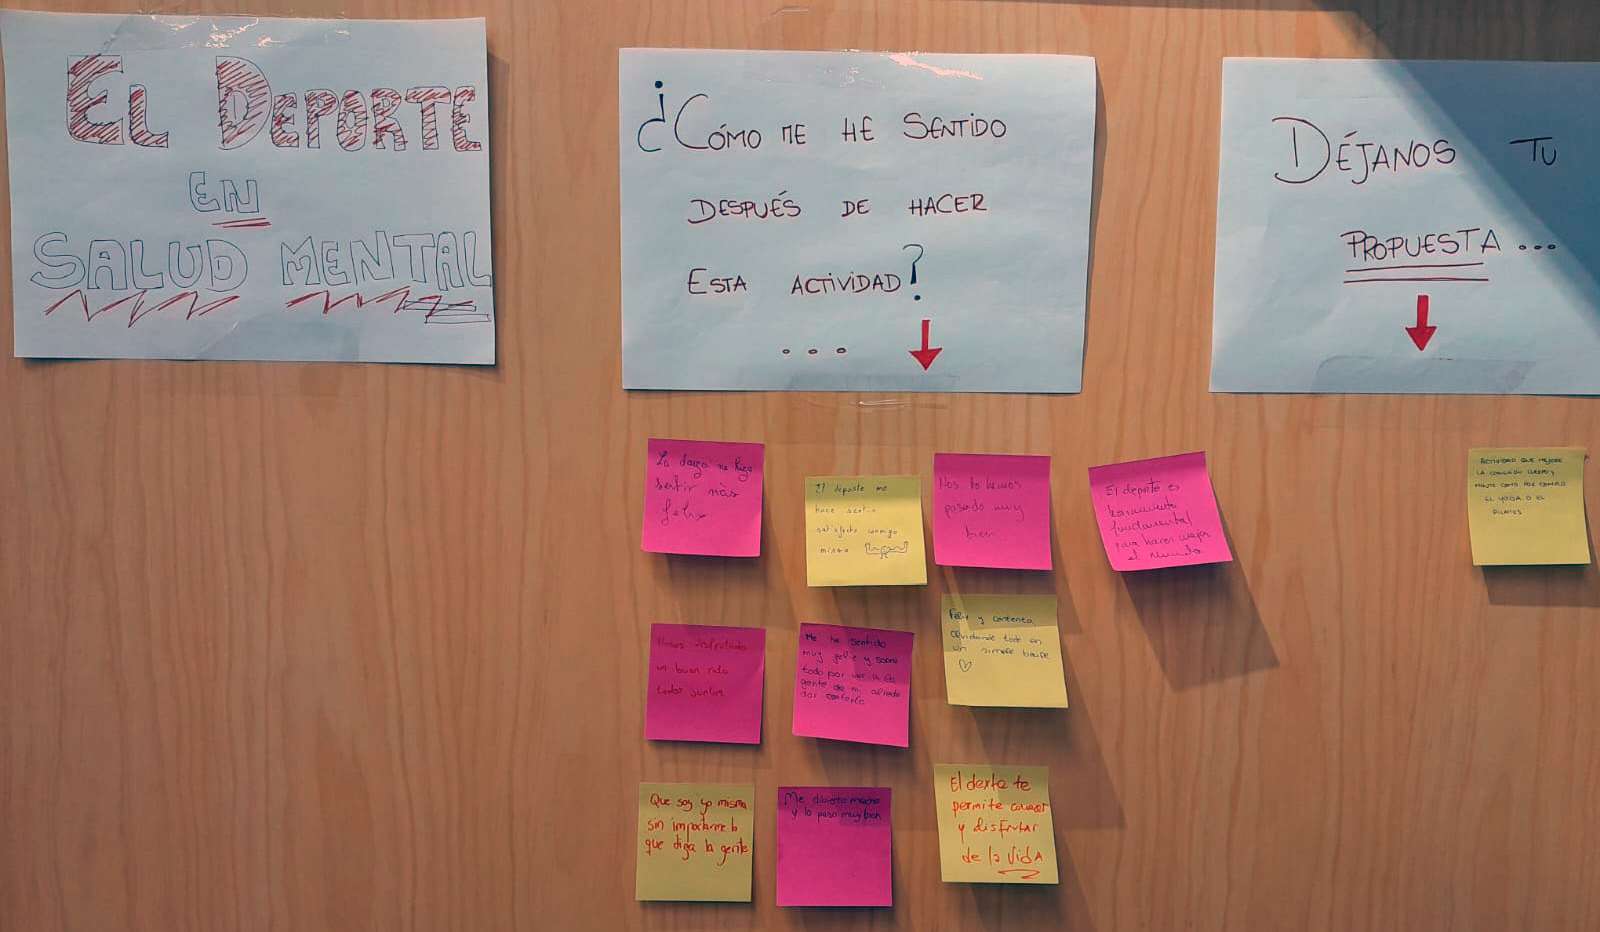 El Deporte
en
Salud Mental
¿Cómo me he sentido
después de hacer
esta actividad?
...
Déjanos tu
propuesta...
La danza me hizo
sentir más
feliz
El deporte me
hace sentir
satisfecho conmigo
mismo
Nos lo hemos
pasado muy
bien
El deporte es
fundamental
para hacer mejor
el mundo
ACTIVIDAD QUE MEJORE
LA CONEXIÓN CUERPO Y
MENTE COMO POR EJEMPLO
EL YOGA O EL
PILATES
Hemos disfrutado
un buen rato
todos juntos
Me he sentido
muy feliz y sobre
todo por ver a la
gente de mi alrede
dor contenta
Feliz y contenta
olvidando todo en
un simple baile
Que soy yo misma
sin importarme lo
que diga la gente
Me divierto mucho
y lo paso muy bien
El te
permite conocer
y disfrutar
de la vida